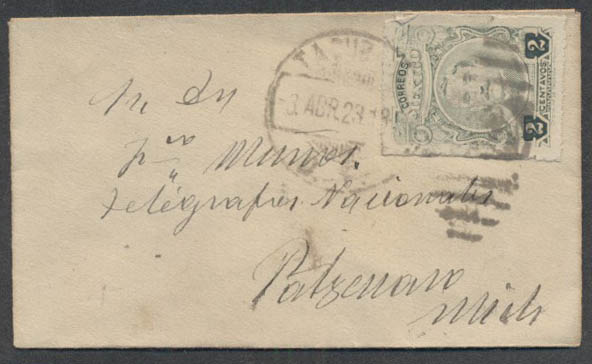 CORREOS
2 CENTAVOS 2
TACUBA
3 ABR. 23
Sr. Dn
Frco Munoz.
Telégrafos Nacionales
Patzcuaro
Mich